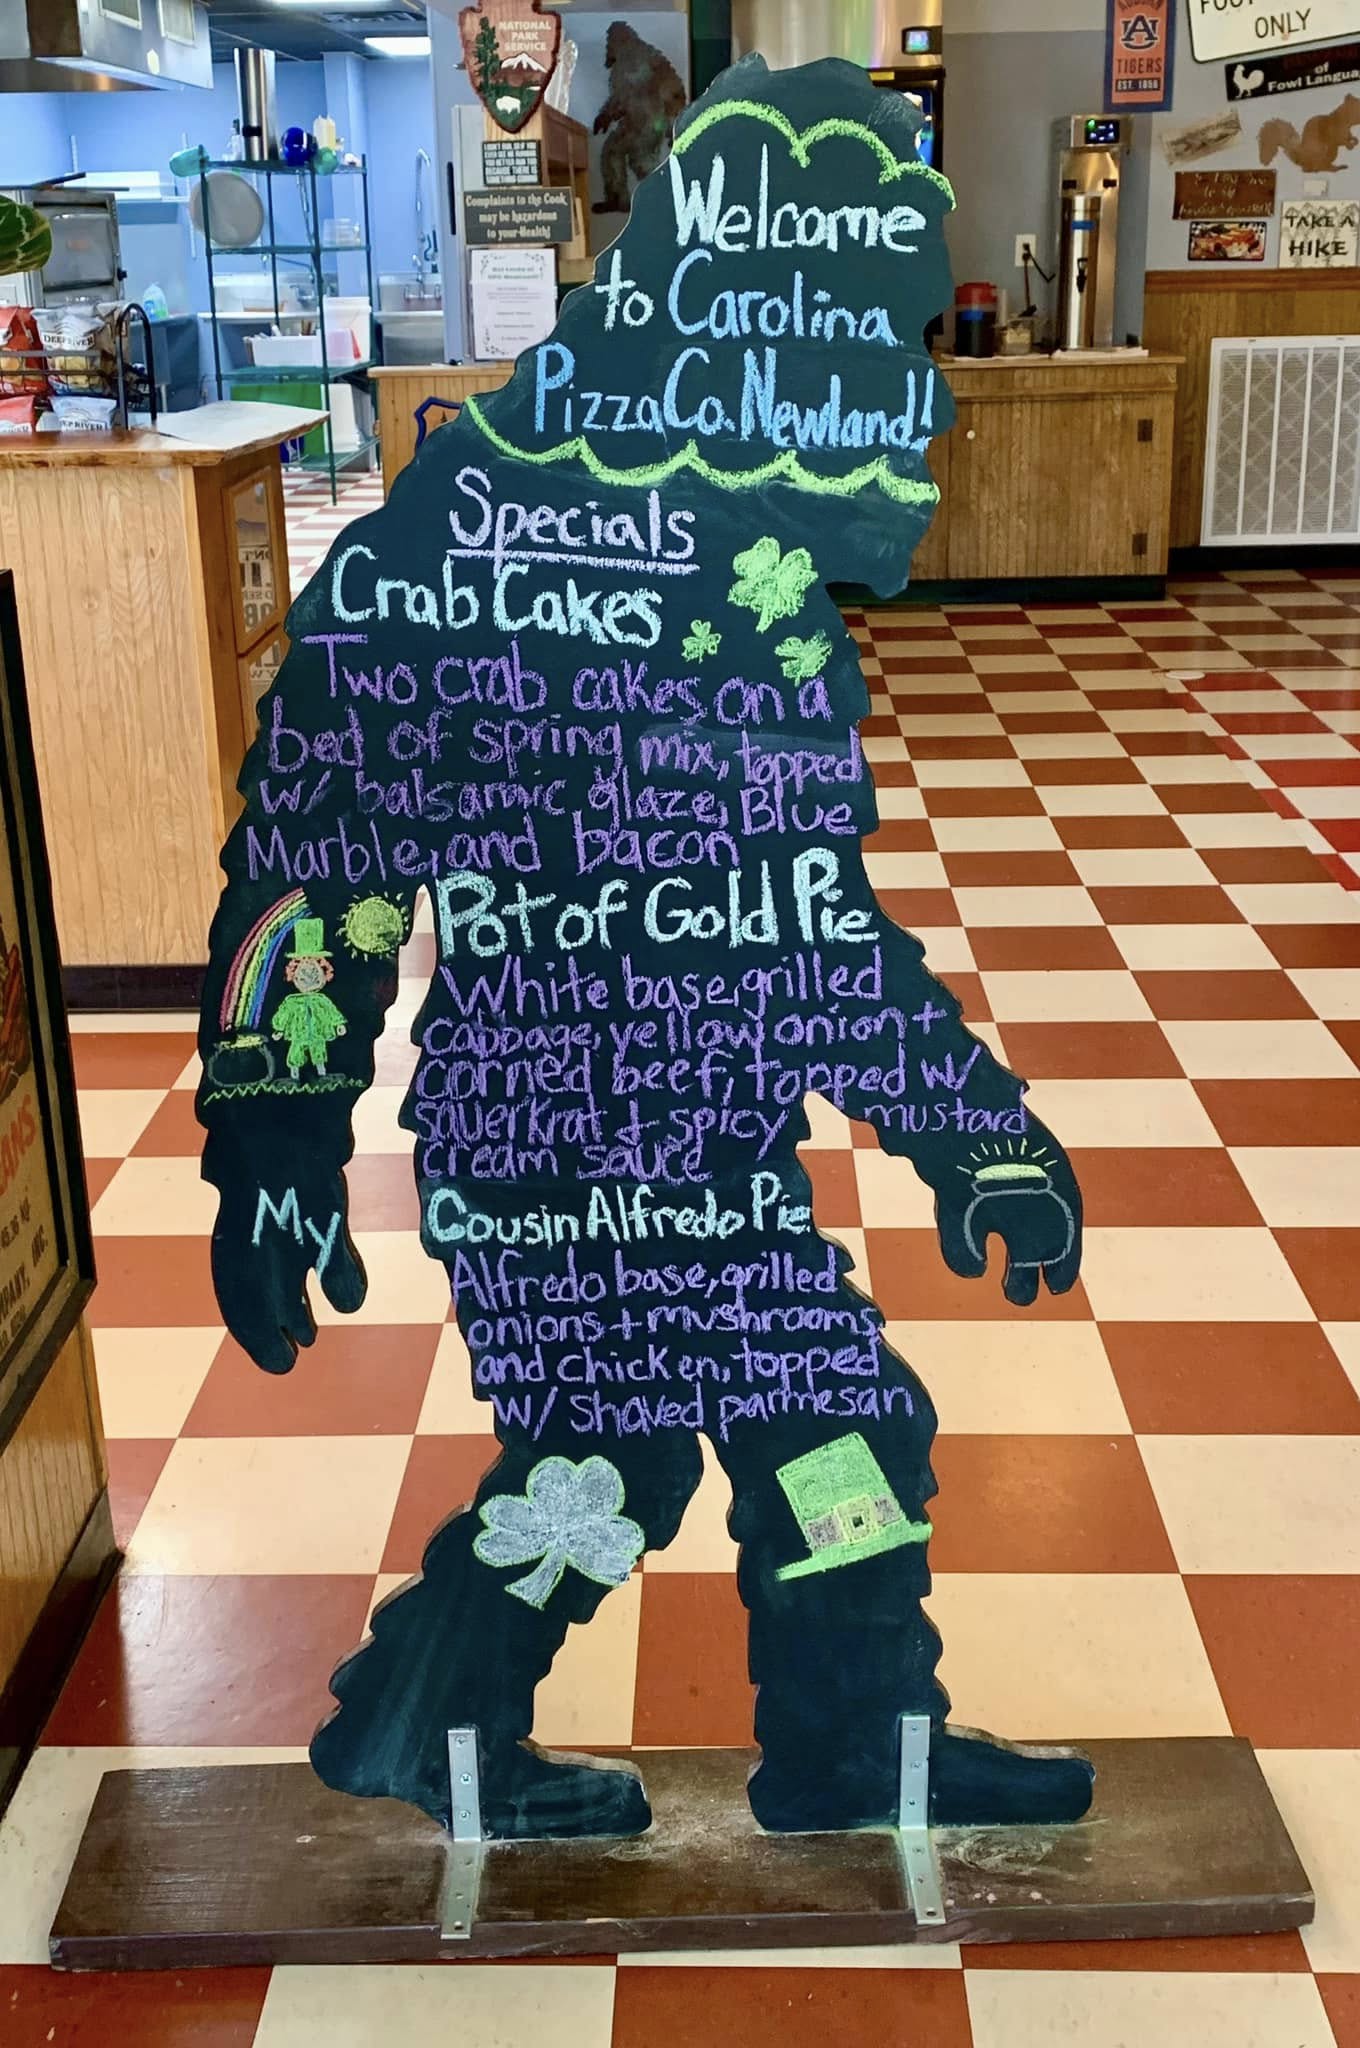 NATIONAL
PARK
SERVICE
Complaints to the Cook
may be hazardous
to your Health!
AUBURN
AU
TIGERS
EST. 1856
ONLY
of
Fowl Langua
TAKE A
HIKE
DEEP RIVER
Welcome
to Carolina
Pizza Co. Newland!
Specials
Crab Cakes
Two crab cakes on a
bed of spring mix, topped
w/ balsamic glaze, Blue
Marble, and bacon
Pot of Gold Pie
White base, grilled
cabbage, yellow onion +
corned beef, topped w/
sauerkrat + spicy mustard
cream sauce
My Cousin Alfredo Pie
Alfredo base, grilled
onions + mushrooms,
and chicken, topped
w/ shaved parmesan